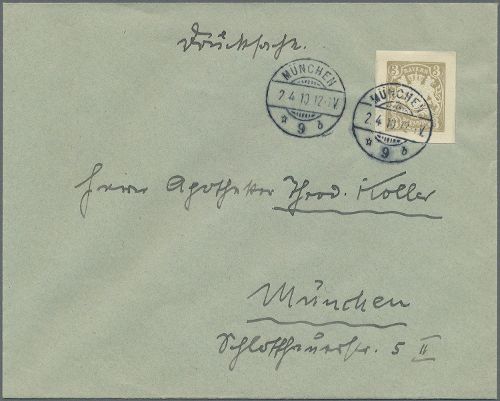 Drucksache.
BAYERN
3 3
MÜNCHEN
2.4.10.12-1V.
* 9 b
MÜNCHEN
2.4.10.12-1V.
* 9 b
Herrn Apotheker Theod. Koller
München
Schlotthauerstr. 5 II